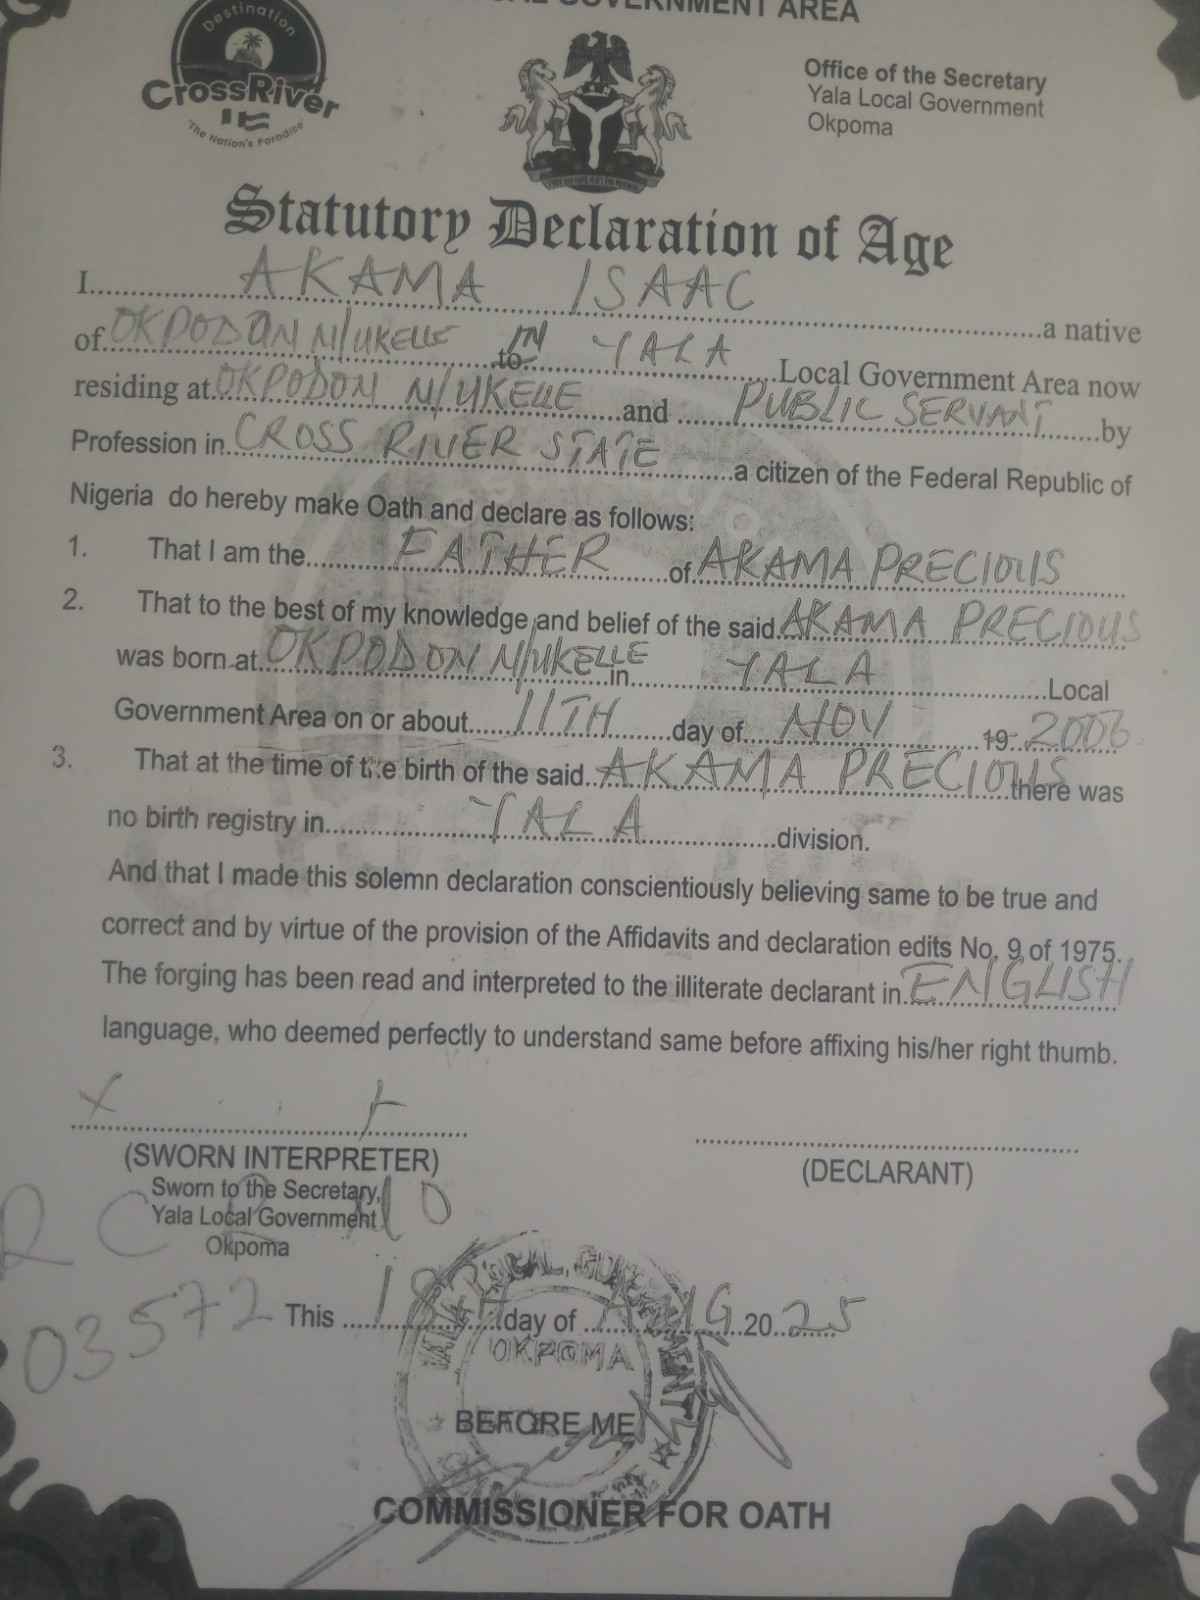 GOVERNMENT AREA
Destination
CrossRiver
The Nation's Paradise
Office of the Secretary
Yala Local Government
Okpoma
Statutory Declaration of Age
I AKAMA ISAAC a native
of OKPODON N/UKELLE to IN YALA Local Government Area now
residing at OKPODON N/UKELLE and PUBLIC SERVANT by
Profession in CROSS RIVER STATE a citizen of the Federal Republic of
Nigeria do hereby make Oath and declare as follows:
1. That I am the FATHER of AKAMA PRECIOUS
2. That to the best of my knowledge and belief of the said AKAMA PRECIOUS
was born at OKPODON N/UKELLE in YALA Local
Government Area on or about 11TH day of NOV 19 2006
3. That at the time of the birth of the said AKAMA PRECIOUS there was
no birth registry in YALA division.
And that I made this solemn declaration conscientiously believing same to be true and
correct and by virtue of the provision of the Affidavits and declaration edits No. 9 of 1975.
The forging has been read and interpreted to the illiterate declarant in ENGLISH
language, who deemed perfectly to understand same before affixing his/her right thumb.
(SWORN INTERPRETER)
(DECLARANT)
Sworn to the Secretary,
Yala Local Government
Okpoma
03572
This 18TH day of AUG 2025
YALA LOCAL GOVERNMENT
OKPOMA
BEFORE ME
COMMISSIONER FOR OATH